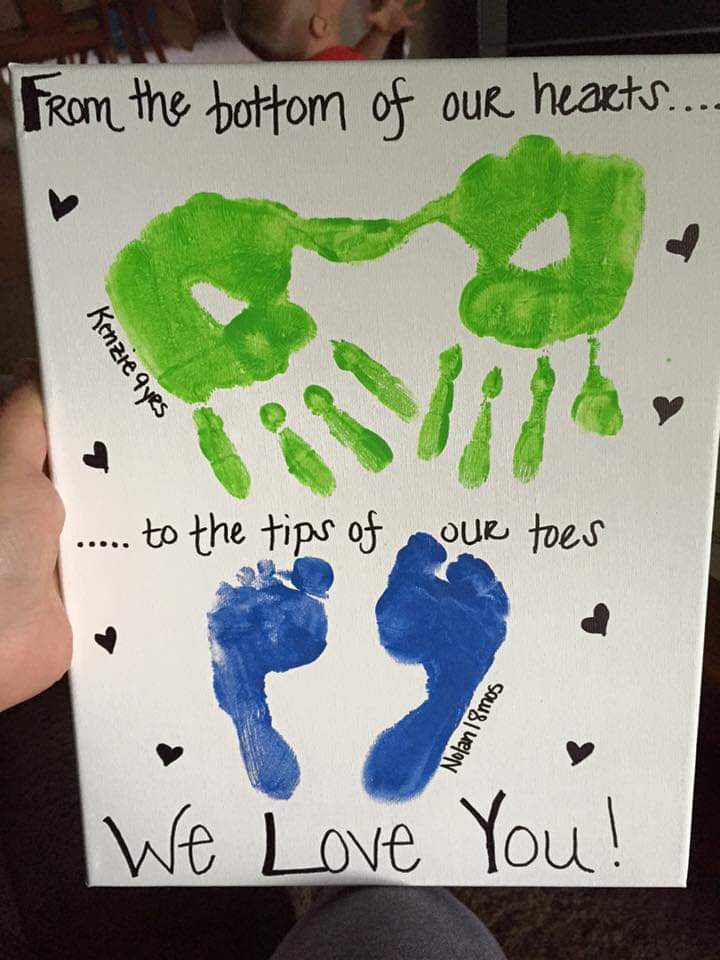 FRom the bottom of ouR hearts....
Kenzie 9 yRs
..... to the tips of ouR toes
Nolan 18mos
We Love You!